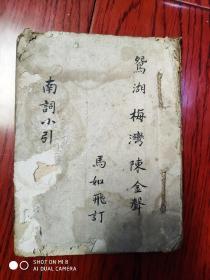 鴛湖梅灣陳金聲
馬如飛訂
南詞小引
SHOT ON MI 6X
AI DUAL CAMERA